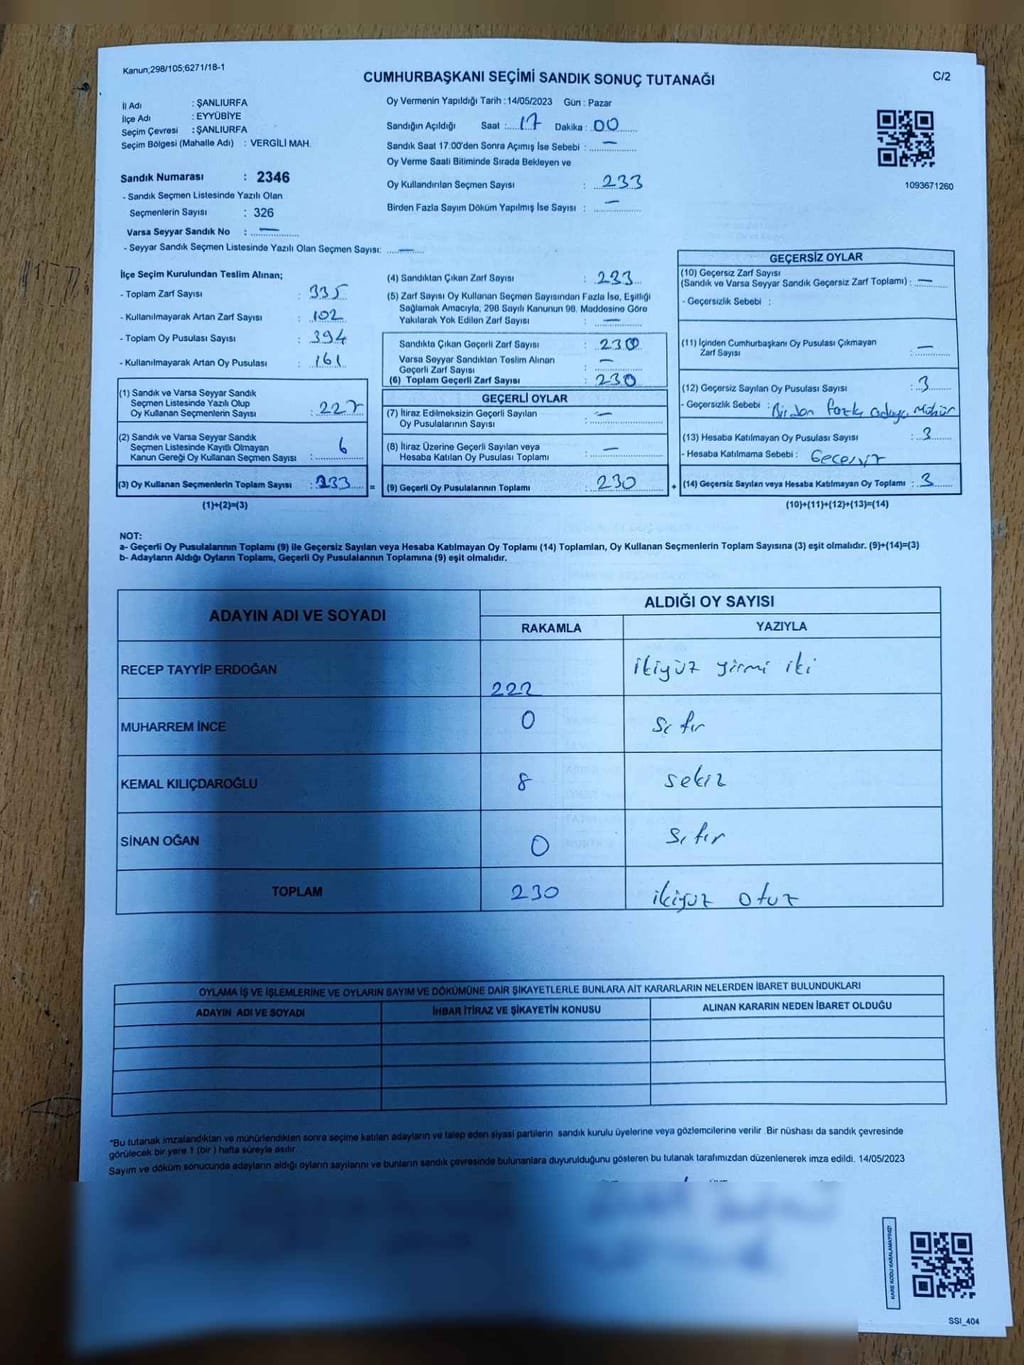 Kanun;298/105;6271/18-1
CUMHURBAŞKANI SEÇİMİ SANDIK SONUÇ TUTANAĞI
C/2
İl Adı : ŞANLIURFA
İlçe Adı : EYYÜBİYE
Seçim Çevresi : ŞANLIURFA
Seçim Bölgesi (Mahalle Adı) : VERGİLİ MAH.
Sandık Numarası : 2346
- Sandık Seçmen Listesinde Yazılı Olan
Seçmenlerin Sayısı : 326
Varsa Seyyar Sandık No : —
- Seyyar Sandık Seçmen Listesinde Yazılı Olan Seçmen Sayısı: —
Oy Vermenin Yapıldığı Tarih : 14/05/2023 Gün : Pazar
Sandığın Açıldığı Saat : 17 Dakika : 00
Sandık Saat 17:00'den Sonra Açımış İse Sebebi : —
Oy Verme Saati Bitiminde Sırada Bekleyen ve
Oy Kullandırılan Seçmen Sayısı : 233
Birden Fazla Sayım Döküm Yapılmış İse Sayısı : —
1093671260
İlçe Seçim Kurulundan Teslim Alınan;
- Toplam Zarf Sayısı : 335
- Kullanılmayarak Artan Zarf Sayısı : 102
- Toplam Oy Pusulası Sayısı : 394
- Kullanılmayarak Artan Oy Pusulası : 161
(1) Sandık ve Varsa Seyyar Sandık
Seçmen Listesinde Yazılı Olup
Oy Kullanan Seçmenlerin Sayısı : 227
(2) Sandık ve Varsa Seyyar Sandık
Seçmen Listesinde Kayıtlı Olmayan
Kanun Gereği Oy Kullanan Seçmen Sayısı : 6
(3) Oy Kullanan Seçmenlerin Toplam Sayısı : 233 =
(1)+(2)=(3)
(4) Sandıktan Çıkan Zarf Sayısı : 233
(5) Zarf Sayısı Oy Kullanan Seçmen Sayısından Fazla İse, Eşitliği
Sağlamak Amacıyla, 298 Sayılı Kanunun 98. Maddesine Göre
Yakılarak Yok Edilen Zarf Sayısı : —
Sandıkta Çıkan Geçerli Zarf Sayısı : 230
Varsa Seyyar Sandıktan Teslim Alınan
Geçerli Zarf Sayısı : —
(6) Toplam Geçerli Zarf Sayısı : 230
GEÇERLİ OYLAR
(7) İtiraz Edilmeksizin Geçerli Sayılan
Oy Pusulalarının Sayısı : —
(8) İtiraz Üzerine Geçerli Sayılan veya
Hesaba Katılan Oy Pusulası Toplamı : —
(9) Geçerli Oy Pusulalarının Toplamı : 230 +
GEÇERSİZ OYLAR
(10) Geçersiz Zarf Sayısı
(Sandık ve Varsa Seyyar Sandık Geçersiz Zarf Toplamı) : —
- Geçersizlik Sebebi :
(11) İçinden Cumhurbaşkanı Oy Pusulası Çıkmayan
Zarf Sayısı : —
(12) Geçersiz Sayılan Oy Pusulası Sayısı : 3
- Geçersizlik Sebebi : Birden fazla adaya Mühür
(13) Hesaba Katılmayan Oy Pusulası Sayısı : 3
- Hesaba Katılmama Sebebi : Geçersiz
(14) Geçersiz Sayılan veya Hesaba Katılmayan Oy Toplamı : 3
(10)+(11)+(12)+(13)=(14)
NOT:
a- Geçerli Oy Pusulalarının Toplamı (9) ile Geçersiz Sayılan veya Hesaba Katılmayan Oy Toplamı (14) Toplamları, Oy Kullanan Seçmenlerin Toplam Sayısına (3) eşit olmalıdır. (9)+(14)=(3)
b- Adayların Aldığı Oyların Toplamı, Geçerli Oy Pusulalarının Toplamına (9) eşit olmalıdır.
ADAYIN ADI VE SOYADI
ALDIĞI OY SAYISI
RAKAMLA YAZIYLA
RECEP TAYYİP ERDOĞAN 222 ikiyüz yirmi iki
MUHARREM İNCE 0 sıfır
KEMAL KILIÇDAROĞLU 8 sekiz
SİNAN OĞAN 0 sıfır
TOPLAM 230 ikiyüz otuz
OYLAMA İŞ VE İŞLEMLERİNE VE OYLARIN SAYIM VE DÖKÜMÜNE DAİR ŞİKAYETLERLE BUNLARA AİT KARARLARIN NELERDEN İBARET BULUNDUKLARI
ADAYIN ADI VE SOYADI İHBAR İTİRAZ VE ŞİKAYETİN KONUSU ALINAN KARARIN NEDEN İBARET OLDUĞU
"Bu tutanak imzalandıktan ve mühürlendikten sonra seçime katılan adayların ve talep eden siyasi partilerin sandık kurulu üyelerine veya gözlemcilerine verilir. Bir nüshası da sandık çevresinde
görülecek bir yere 1 (bir) hafta süreyle asılır.
Sayım ve döküm sonucunda adayların aldığı oyların sayılarını ve bunların sandık çevresinde bulunanlara duyurulduğunu gösteren bu tutanak tarafımızdan düzenlenerek imza edildi. 14/05/2023
KARE KODU KARALAMAYINIZ!
SSI_404